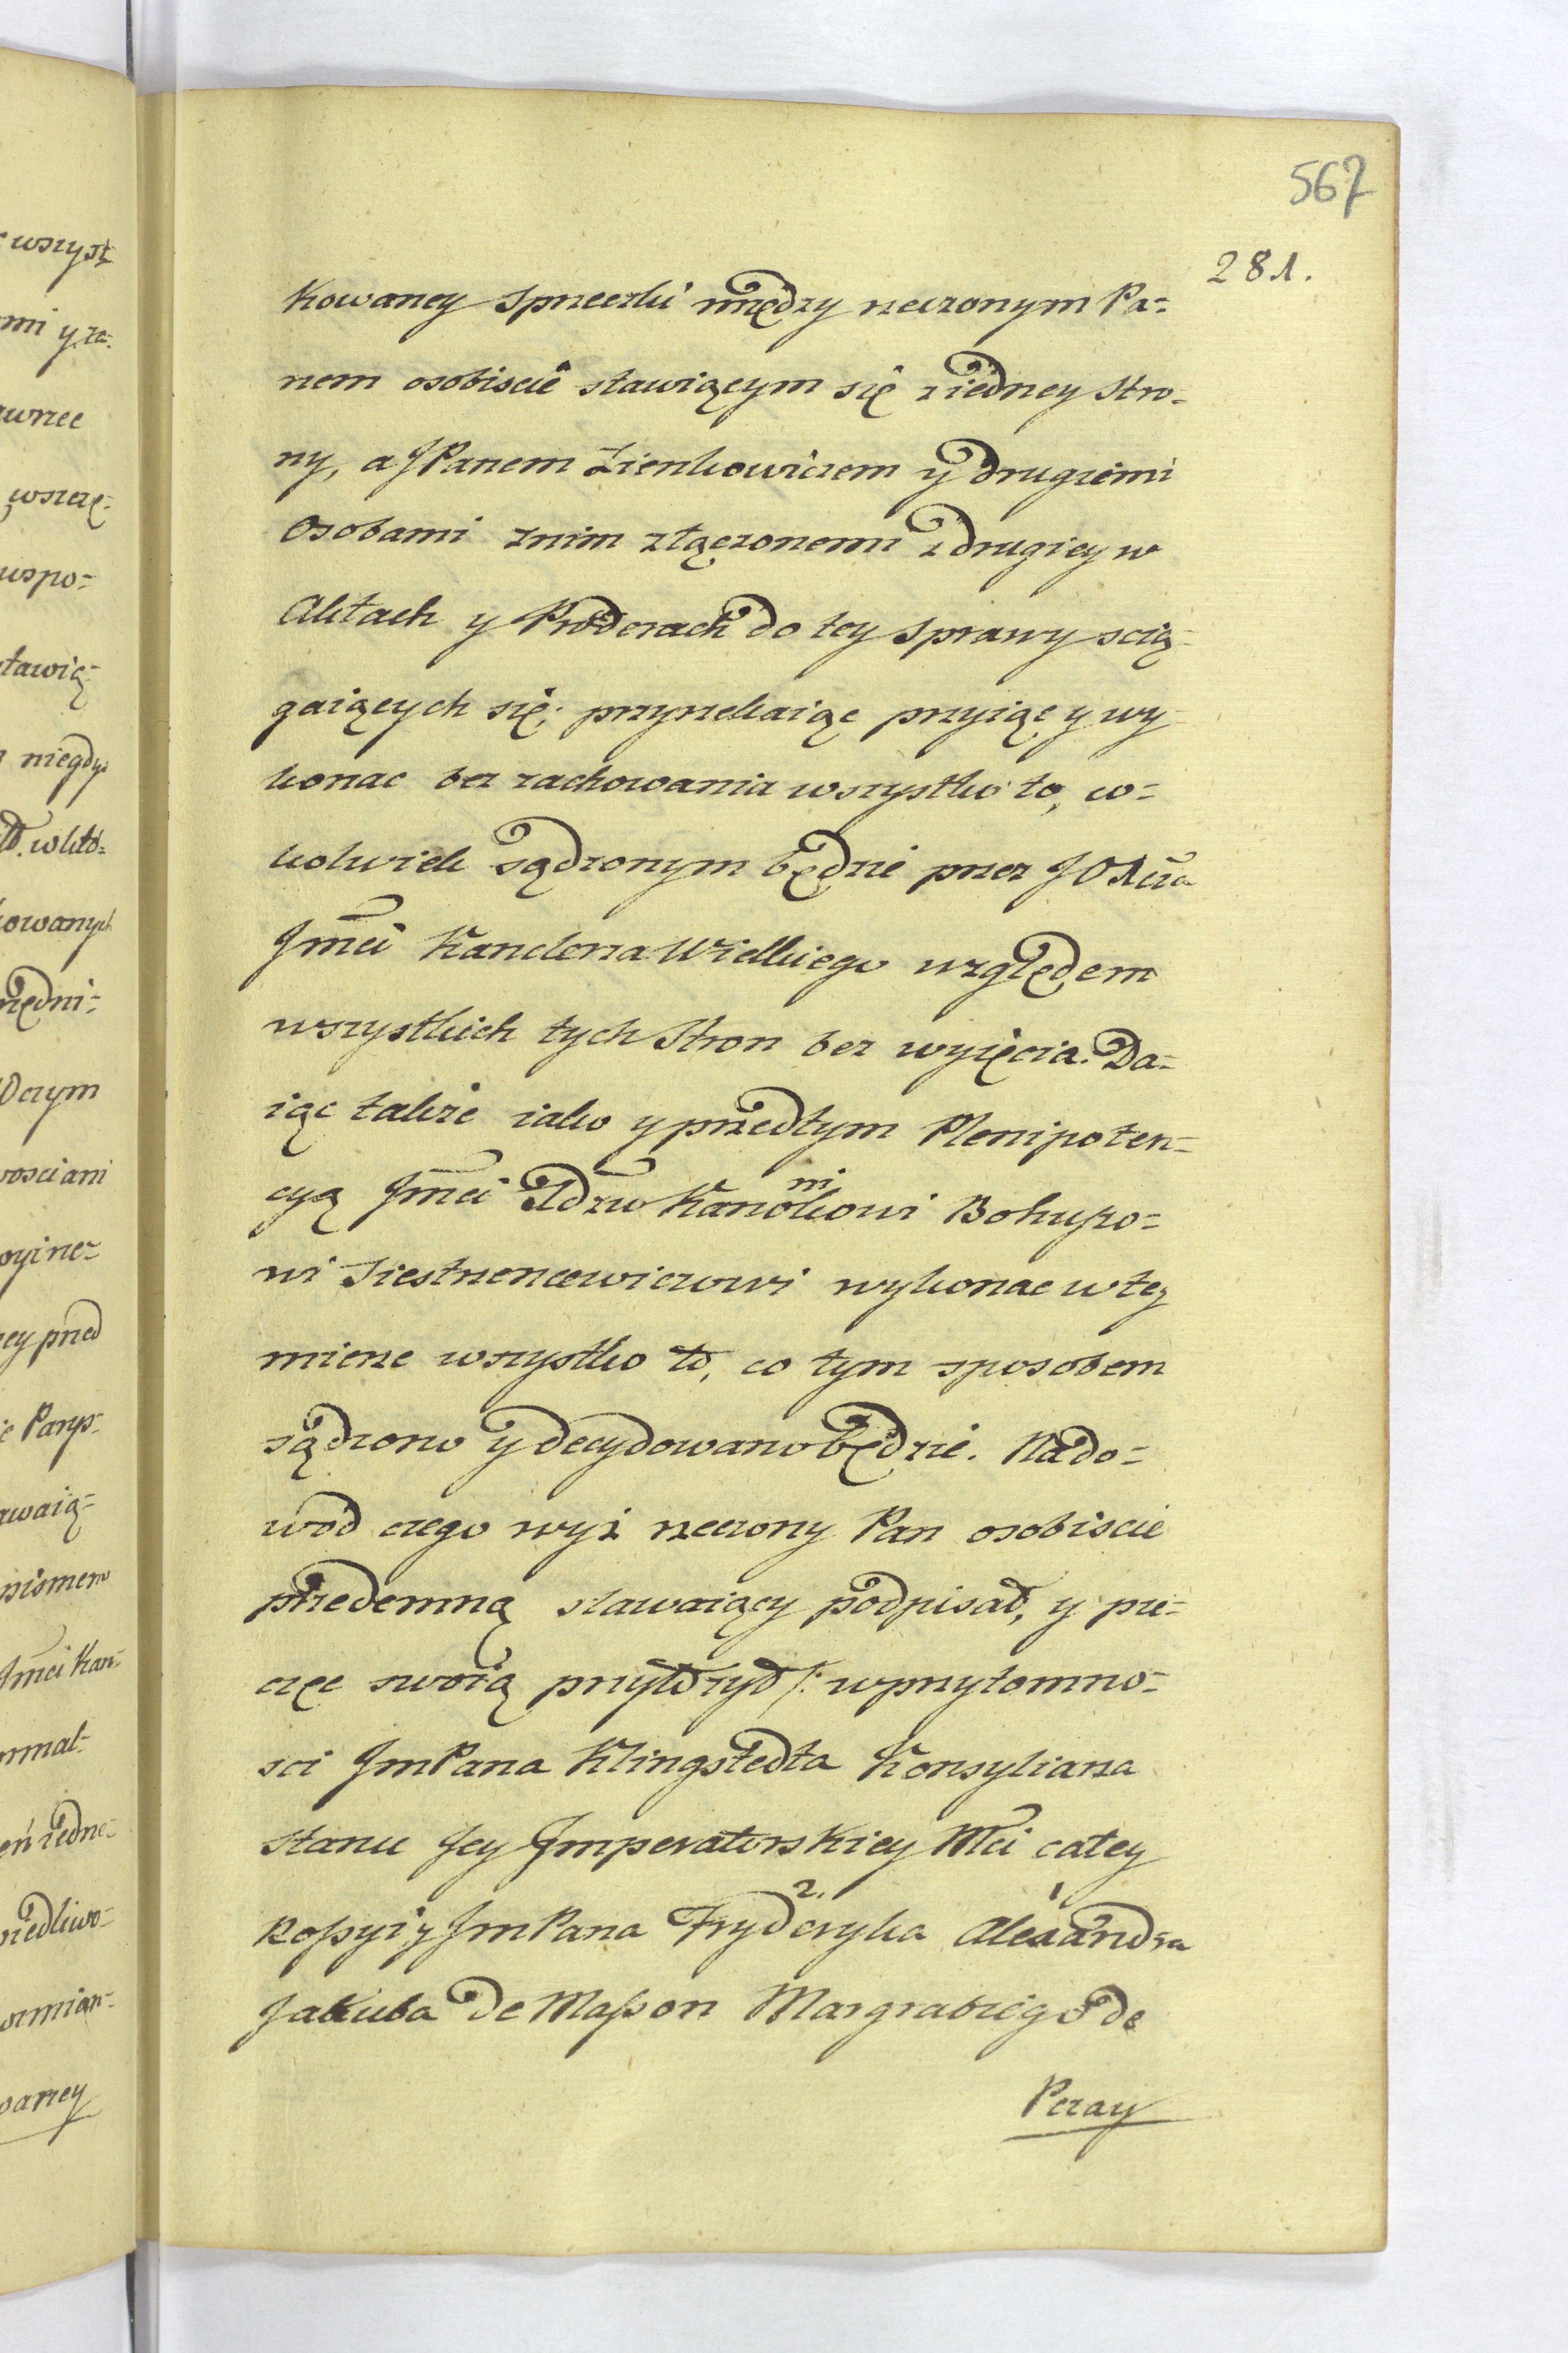 567
281.
kowaney Sprzeczki między rzeczonym Pa=
nem osobiscie stawiącym się z iedney Stro=
ny, a JPanem Zienkowiczem y drugiemi
Osobami znim złączonemi z drugiey w
Aktach y Proderach do tey Sprawy scią=
gaiących się; przyrzekaiąc przyiąc y wy=
konac bez zachowania wszystko to, co=
kolwiek sądzonym będzie przez JO
Jmci Kanclerza Wielkiego względem
wszystkich tych Stron bez wyięcia. Da=
iąc takze iako y przedtym Plenipoten=
cyą Jmci Xdzu Kanonikowi Bohuszo=
wi Siestrzencewiczowi wykonac w tey
mierze wszystko to, co tym sposobem
sądzono y decydowano będzie. Na do=
wod czego wyż rzeczony Pan osobiscie
przedemną stawaiący podpisał, y pie=
częc swoią przyłożył /: w przytomno=
sci JmPana Klingstedta Konsyliarza
Stanu Jey Imperatorskiey Mci całey
Rossyi y JmPana Fryderyka 2. Alexandra 1
Jakuba de Masson Margrabiego de
Pezay
wszyst=
mi y za=
wrzec
wszczę=
wspo=
stawią=
niegdys
w któ=
kowanych
rzędni=
Wczym
wosciami
oyine=
ey przed
ie Parys=
awaią=
pismem
Jmci Kan=
rmal=
eń iedne=
wiedliwo=
ormian=
waney